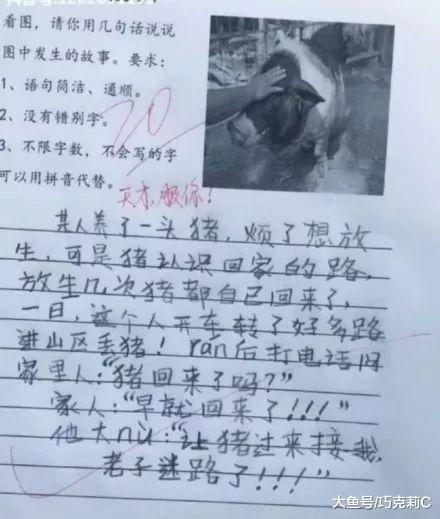 看图，请你用几句话说说
图中发生的故事。要求：
1、语句简洁、通顺。
2、没有错别字。
3、不限字数，不会写的字
可以用拼音代替。
20
天才，服你！
某人养了一头猪，烦了想放
生，可是猪认识回家的路，
放生n次猪都自己回来了，
一日，这个人开车转了好多路
进山区丢猪！rán后打电话问
家里人：“猪回来了吗？”
家人：“早就回来了！！！”
他大nù：“让猪过来接我，
老子迷路了！！！”
大鱼号/巧克莉C